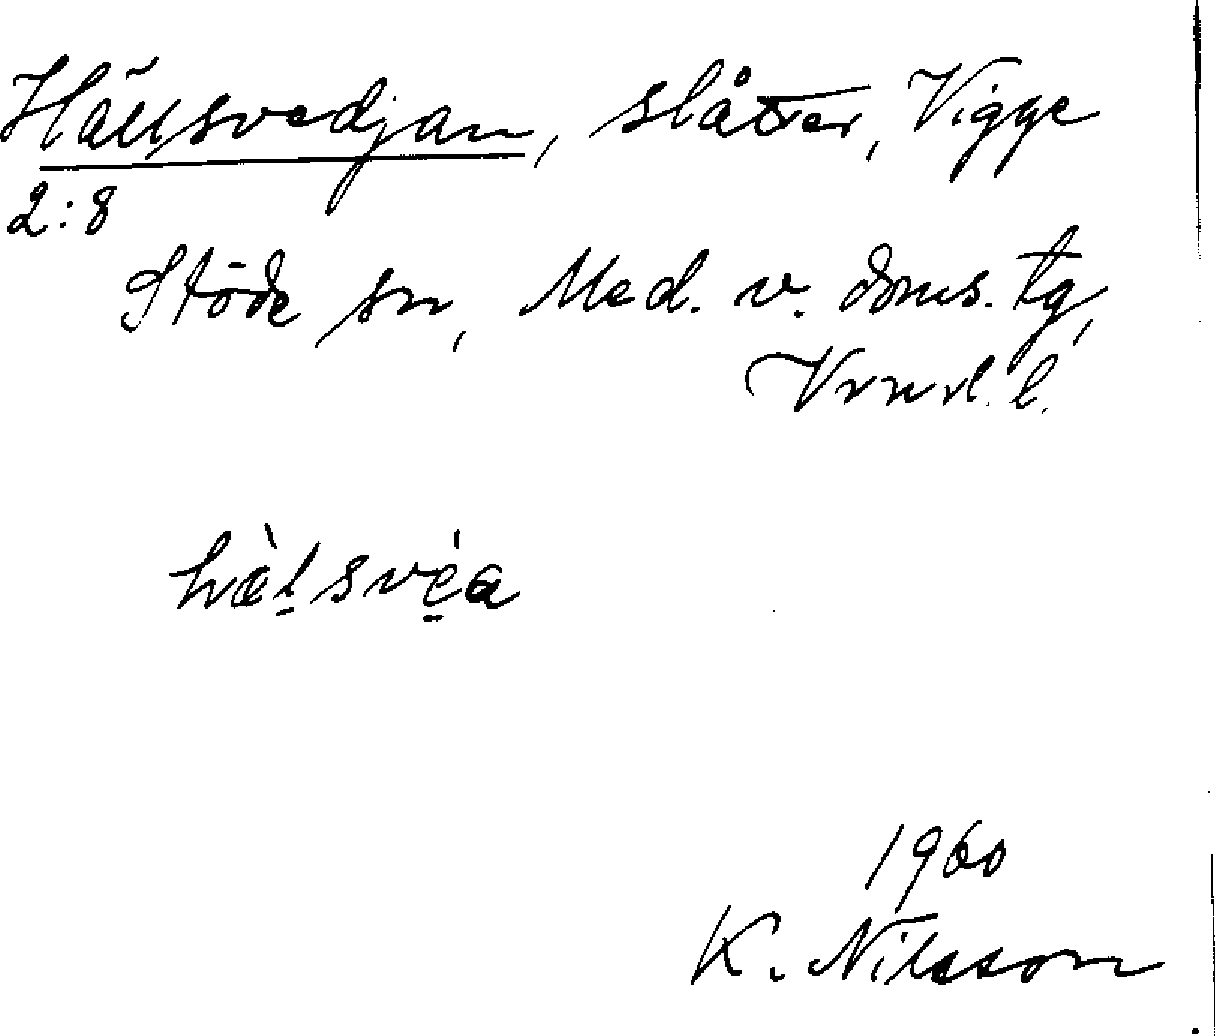 Hällsvedjan, slåtter, Vigge
2:8
Stöde sn, Med. v. doms. tg,
Vrnrl. l.
hæ̀l̠své̠a
1960
K. Nilsson